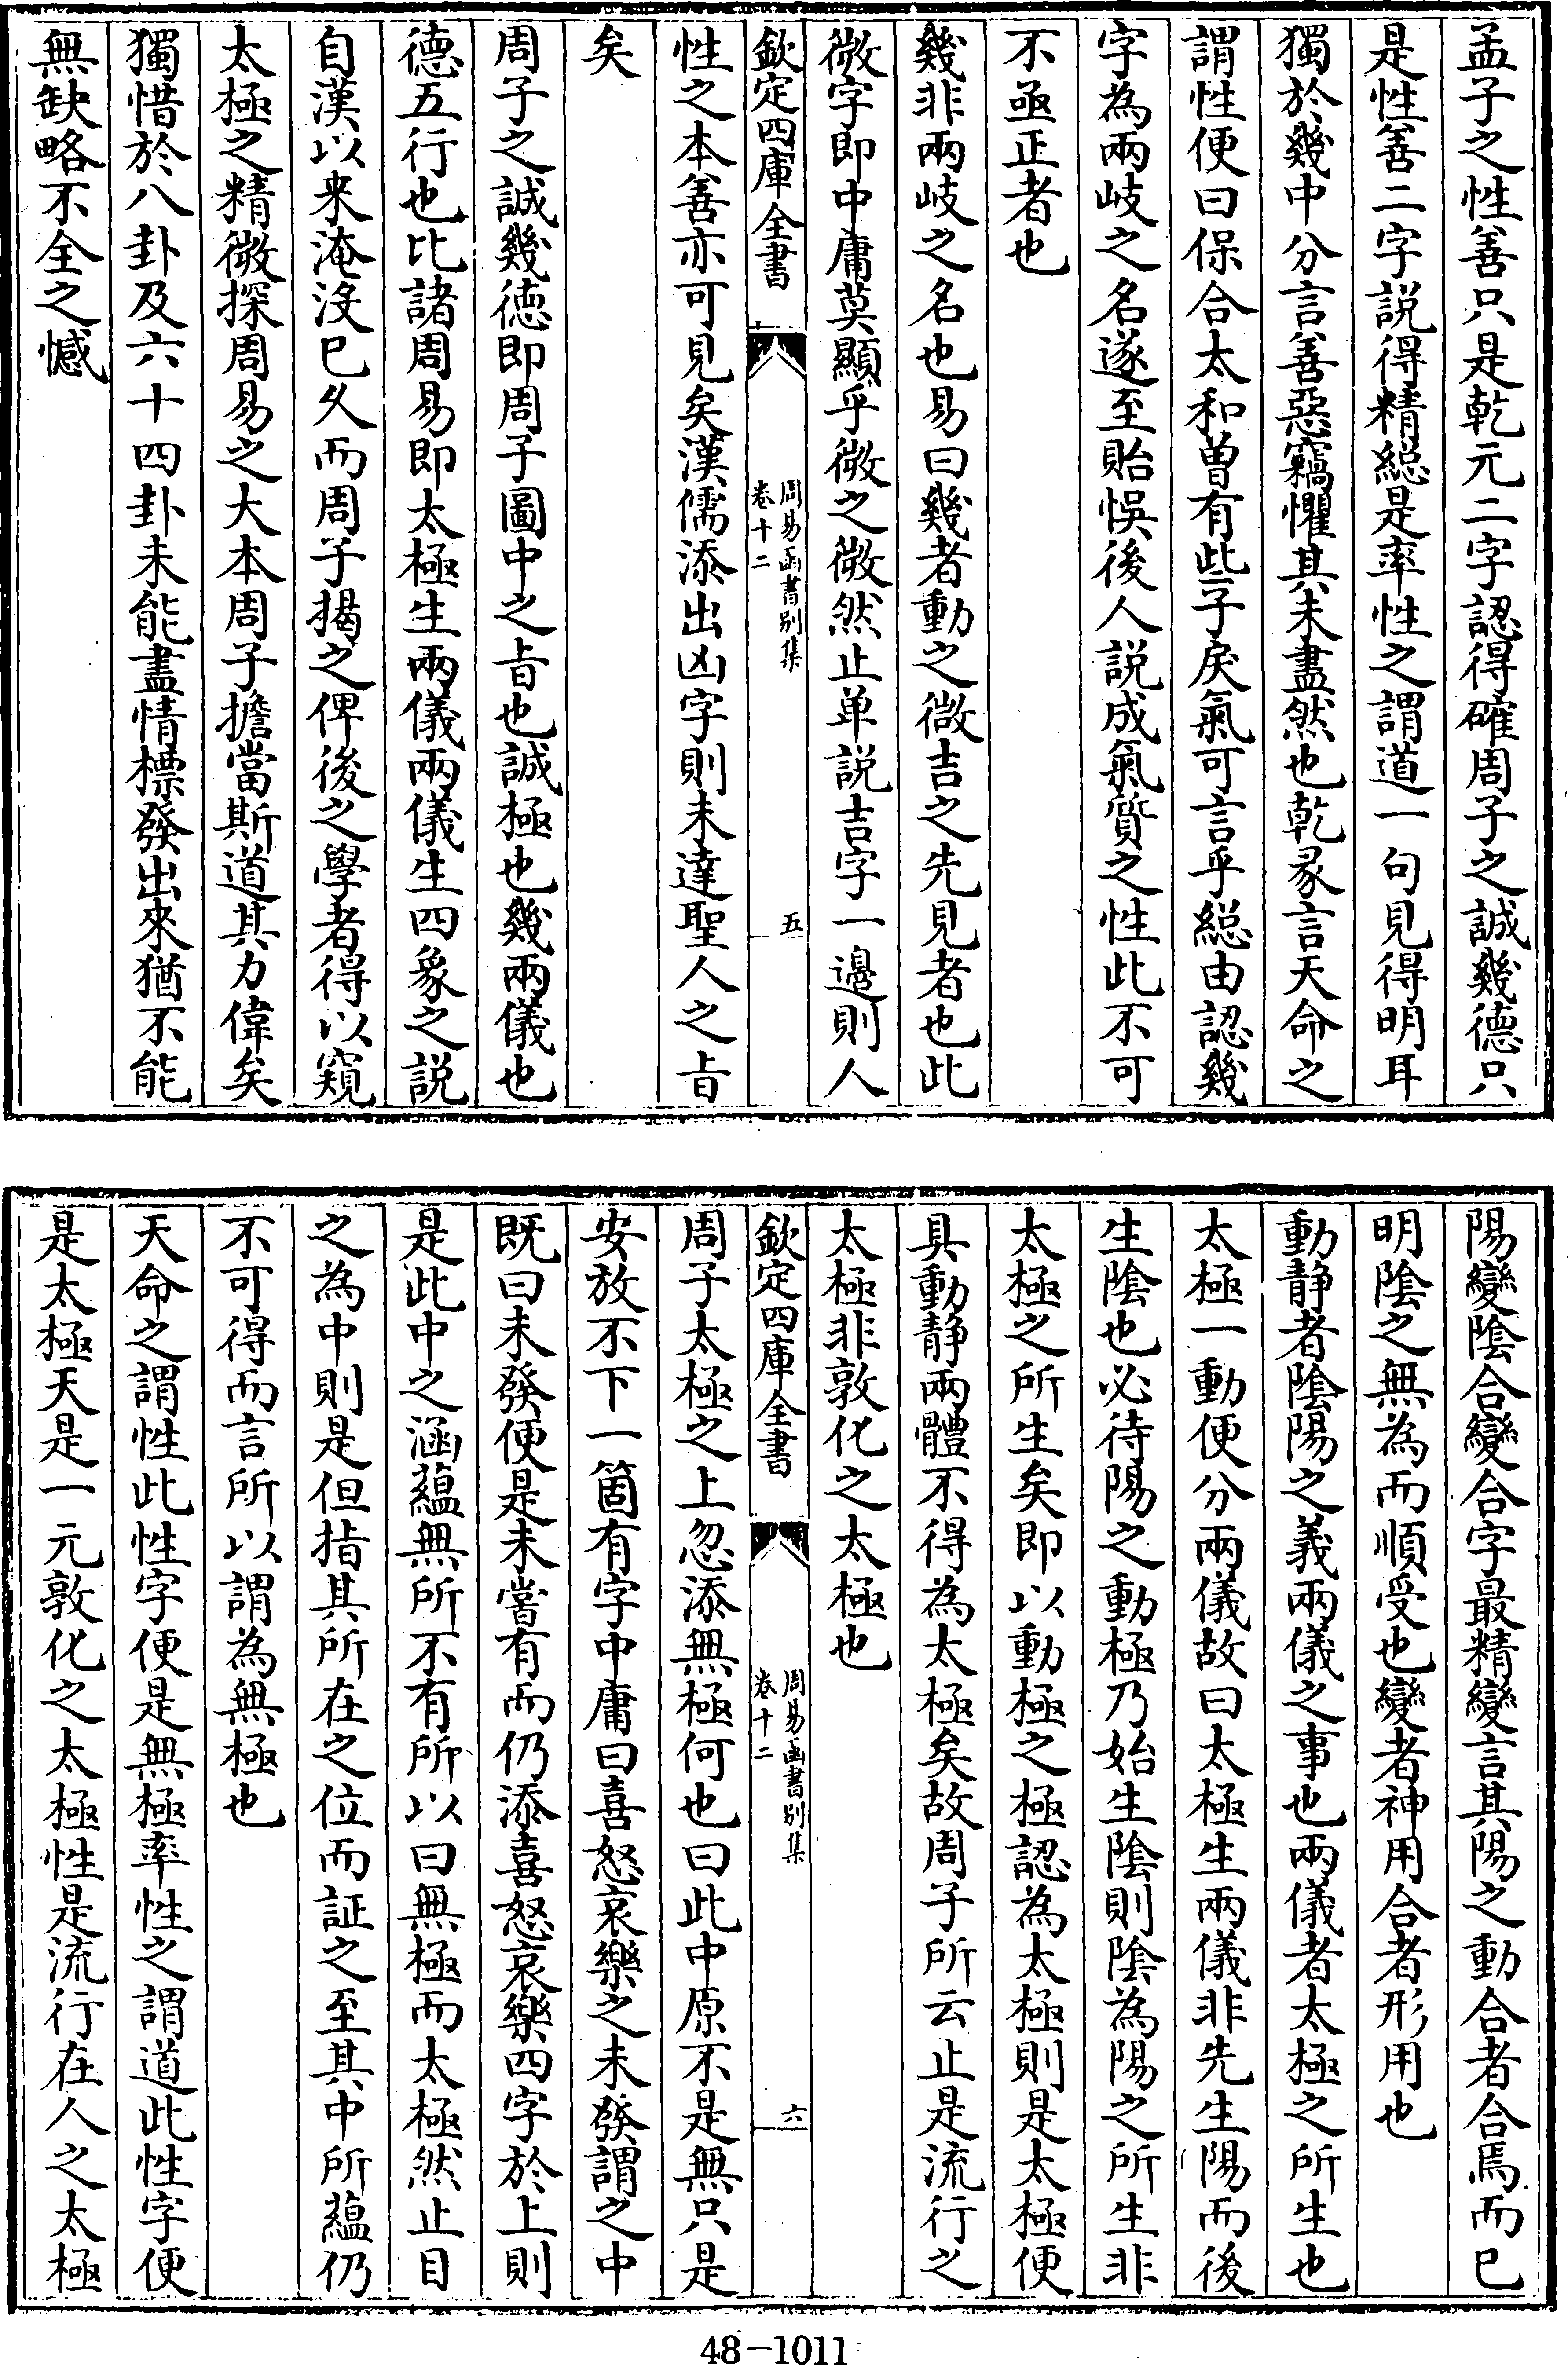 孟子之性善只是乾元二字認得確周子之誠幾德只
是性善二字説得精緫是率性之謂道一句見得明耳
獨於幾中分言善惡竊懼其未盡然也乾彖言天命之
謂性便曰保合太和曽有些子戾氣可言乎緫由認幾
字為兩岐之名遂至貽悞後人説成氣質之性此不可
不亟正者也
幾非兩岐之名也易曰幾者動之微吉之先見者也此
微字即中庸莫顯乎微之微然止单説吉字一邉則人
欽定四庫全書
周易函書别集
卷十二
五
性之本善亦可見矣漢儒添出凶字則未達聖人之㫖
矣
周子之誠幾德即周子圖中之㫖也誠極也幾兩儀也
德五行也比諸周易即太極生兩儀兩儀生四象之説
自漢以来淹沒已久而周子揭之俾後之學者得以窺
太極之精微探周易之大本周子擔當斯道其力偉矣
獨惜於八卦及六十四卦未能盡情標發出來猶不能
無缺略不全之憾
陽變隂合變合字最精變言其陽之動合者合焉而已
明隂之無為而順受也變者神用合者形用也
動静者隂陽之義兩儀之事也兩儀者太極之所生也
太極一動便分兩儀故曰太極生兩儀非先生陽而後
生隂也必待陽之動極乃始生隂則隂為陽之所生非
太極之所生矣即以動極之極認為太極則是太極便
具動静兩體不得為太極矣故周子所云止是流行之
太極非敦化之太極也
欽定四庫全書
周易函書别集
卷十二
六
周子太極之上忽添無極何也曰此中原不是無只是
安放不下一箇有字中庸曰喜怒哀樂之未發謂之中
既曰未發便是未嘗有而仍添喜怒哀樂四字於上則
是此中之涵蘊無所不有所以曰無極而太極然止目
之為中則是但指其所在之位而証之至其中所蘊仍
不可得而言所以謂為無極也
天命之謂性此性字便是無極率性之謂道此性字便
是太極天是一元敦化之太極性是流行在人之太極
48-1011